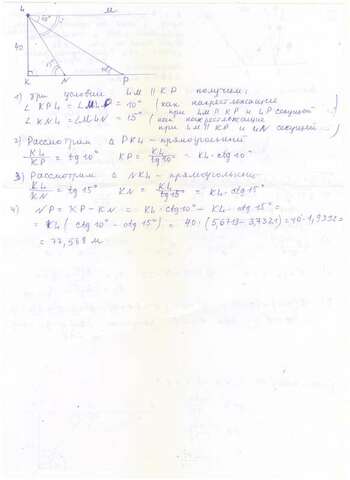 L M
10°
15°
40
15° 10°
K N P
1) При условии LM || KP получим:
∠ KPL = ∠MLP = 10° (как накрестлежащие
при LM || KP и LP секущей)
∠ KNL = ∠MLN = 15° (как накрестлежащие
при LM || KP и LN секущей)
2) Рассмотрим Δ PKL - прямоугольный
KL/KP = tg 10° KP = KL/tg 10° = KL · ctg 10°
3) Рассмотрим Δ NKL - прямоугольный
KL/KN = tg 15° KN = KL/tg 15° = KL · ctg 15°
4) NP = KP - KN = KL · ctg 10° - KL · ctg 15° =
= KL ( ctg 10° - ctg 15° ) = 40 · (5,6713 - 3,7321) = 40 · 1,9392 =
= 77,568 м